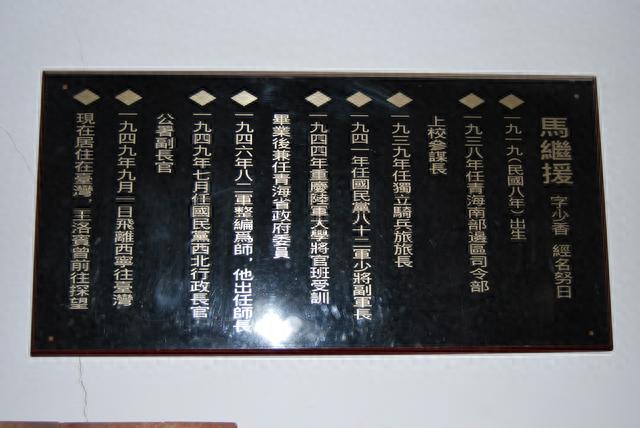 馬繼援 字少香 經名努日
一九一九(民國八年)出生
一九三八年任青海南部邊區司令部
上校參謀長
一九三九年任獨立騎兵旅旅長
一九四一年任國民黨八十二軍少將副軍長
一九四四年重慶陸軍大學將官班受訓
畢業後兼任青海省政府委員
一九四六年八二軍整編爲師，他出任師長
一九四九年七月任國民黨西北行政長官
公署副長官
一九四九年九月二日飛離西寧往臺灣
現在居住在臺灣，王洛賓曾前往探望